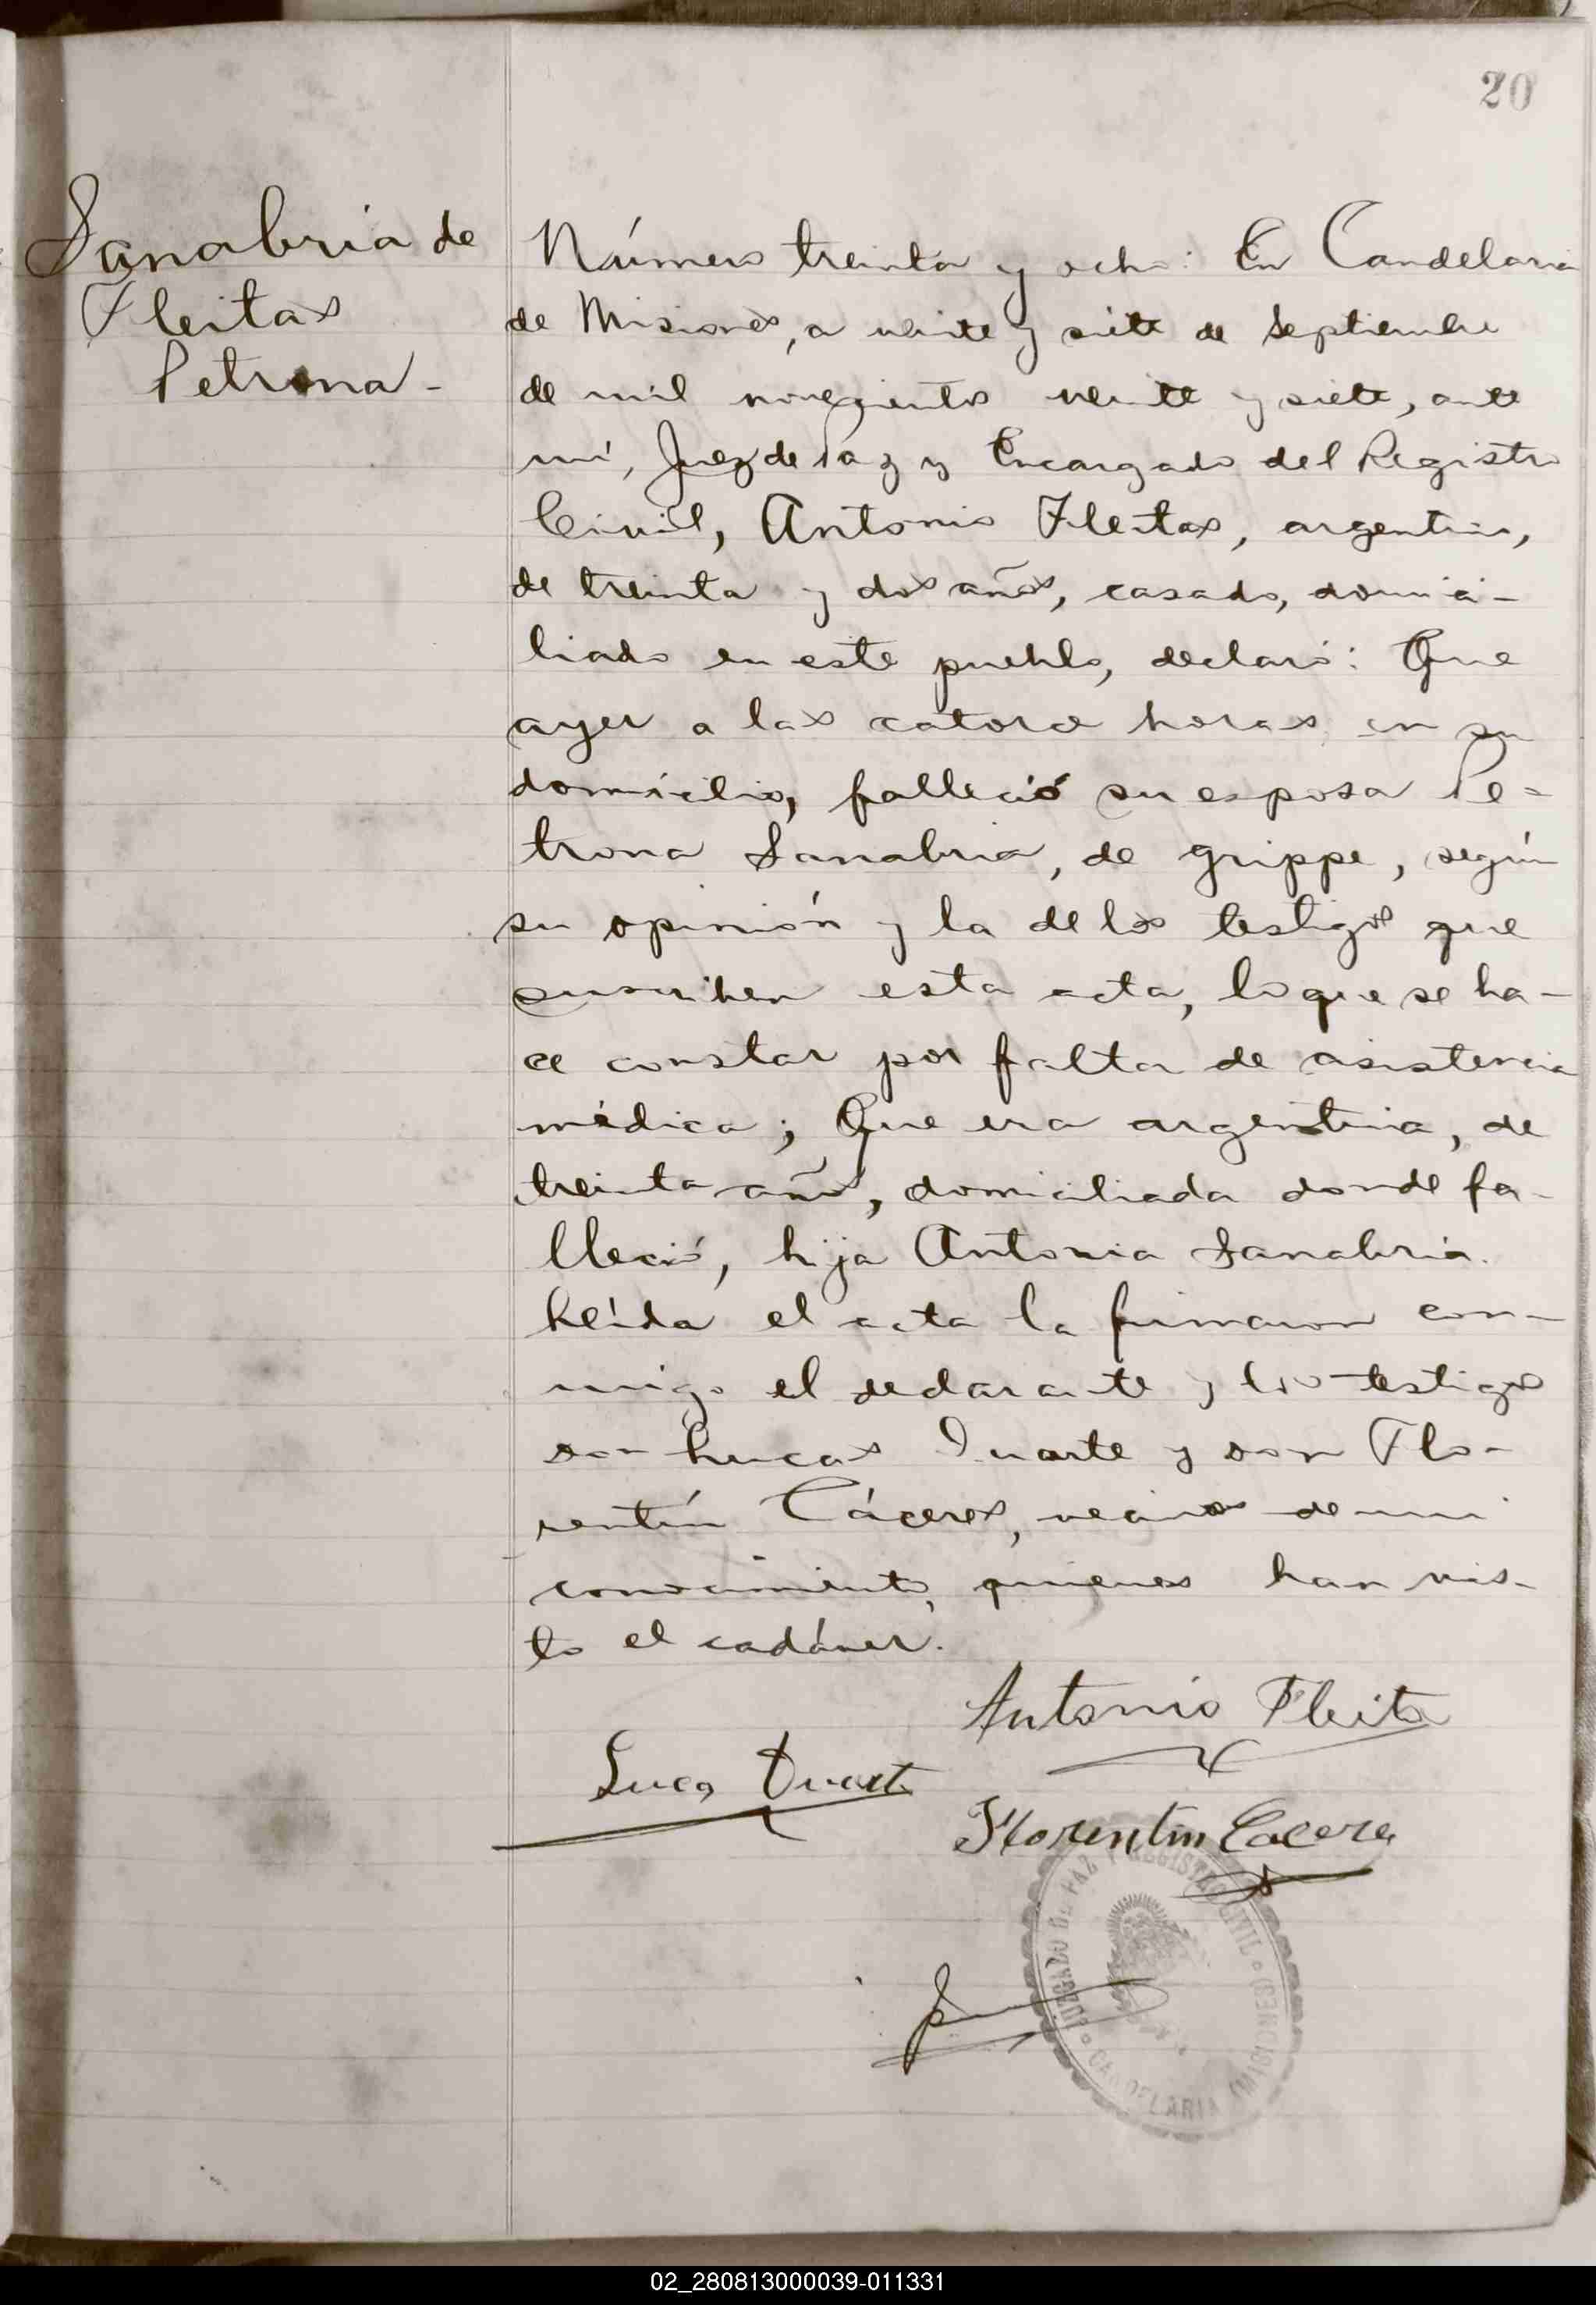 20
Sanabria de
Fleitas
Petrona -
Número treinta y ocho: En Candelaria
de Misiones, a veinte y siete de Septiembre
de mil novecientos veinte y siete, ante
mí, Juez de Paz y Encargado del Registro
Civil, Antonio Fleitas, argentino,
de treinta y dos años, casado, domici-
liado en este pueblo, declaró: Que
ayer a las catorce horas en su
domicilio, falleció su esposa Pe=
trona Sanabria, de grippe, según
su opinión y la de los testigos que
suscriben esta acta, lo que se ha-
ce constar por falta de asistencia
médica; Que era argentina, de
treinta años, domiciliada donde fa-
lleció, hija Antonia Sanabria.
Leída el acta la firmaron con-
migo el declarante y los testigos
don Lucas Duarte y don Flo-
rentín Cáceres, vecinos de mi
conocimiento, quienes han vis-
to el cadáver.
Antonio Fleita
Luca Duarte
Florentin Cacere
JUZGADO DE PAZ Y REGISTRO CIVIL
CANDELARIA (MISIONES)
02_280813000039-011331